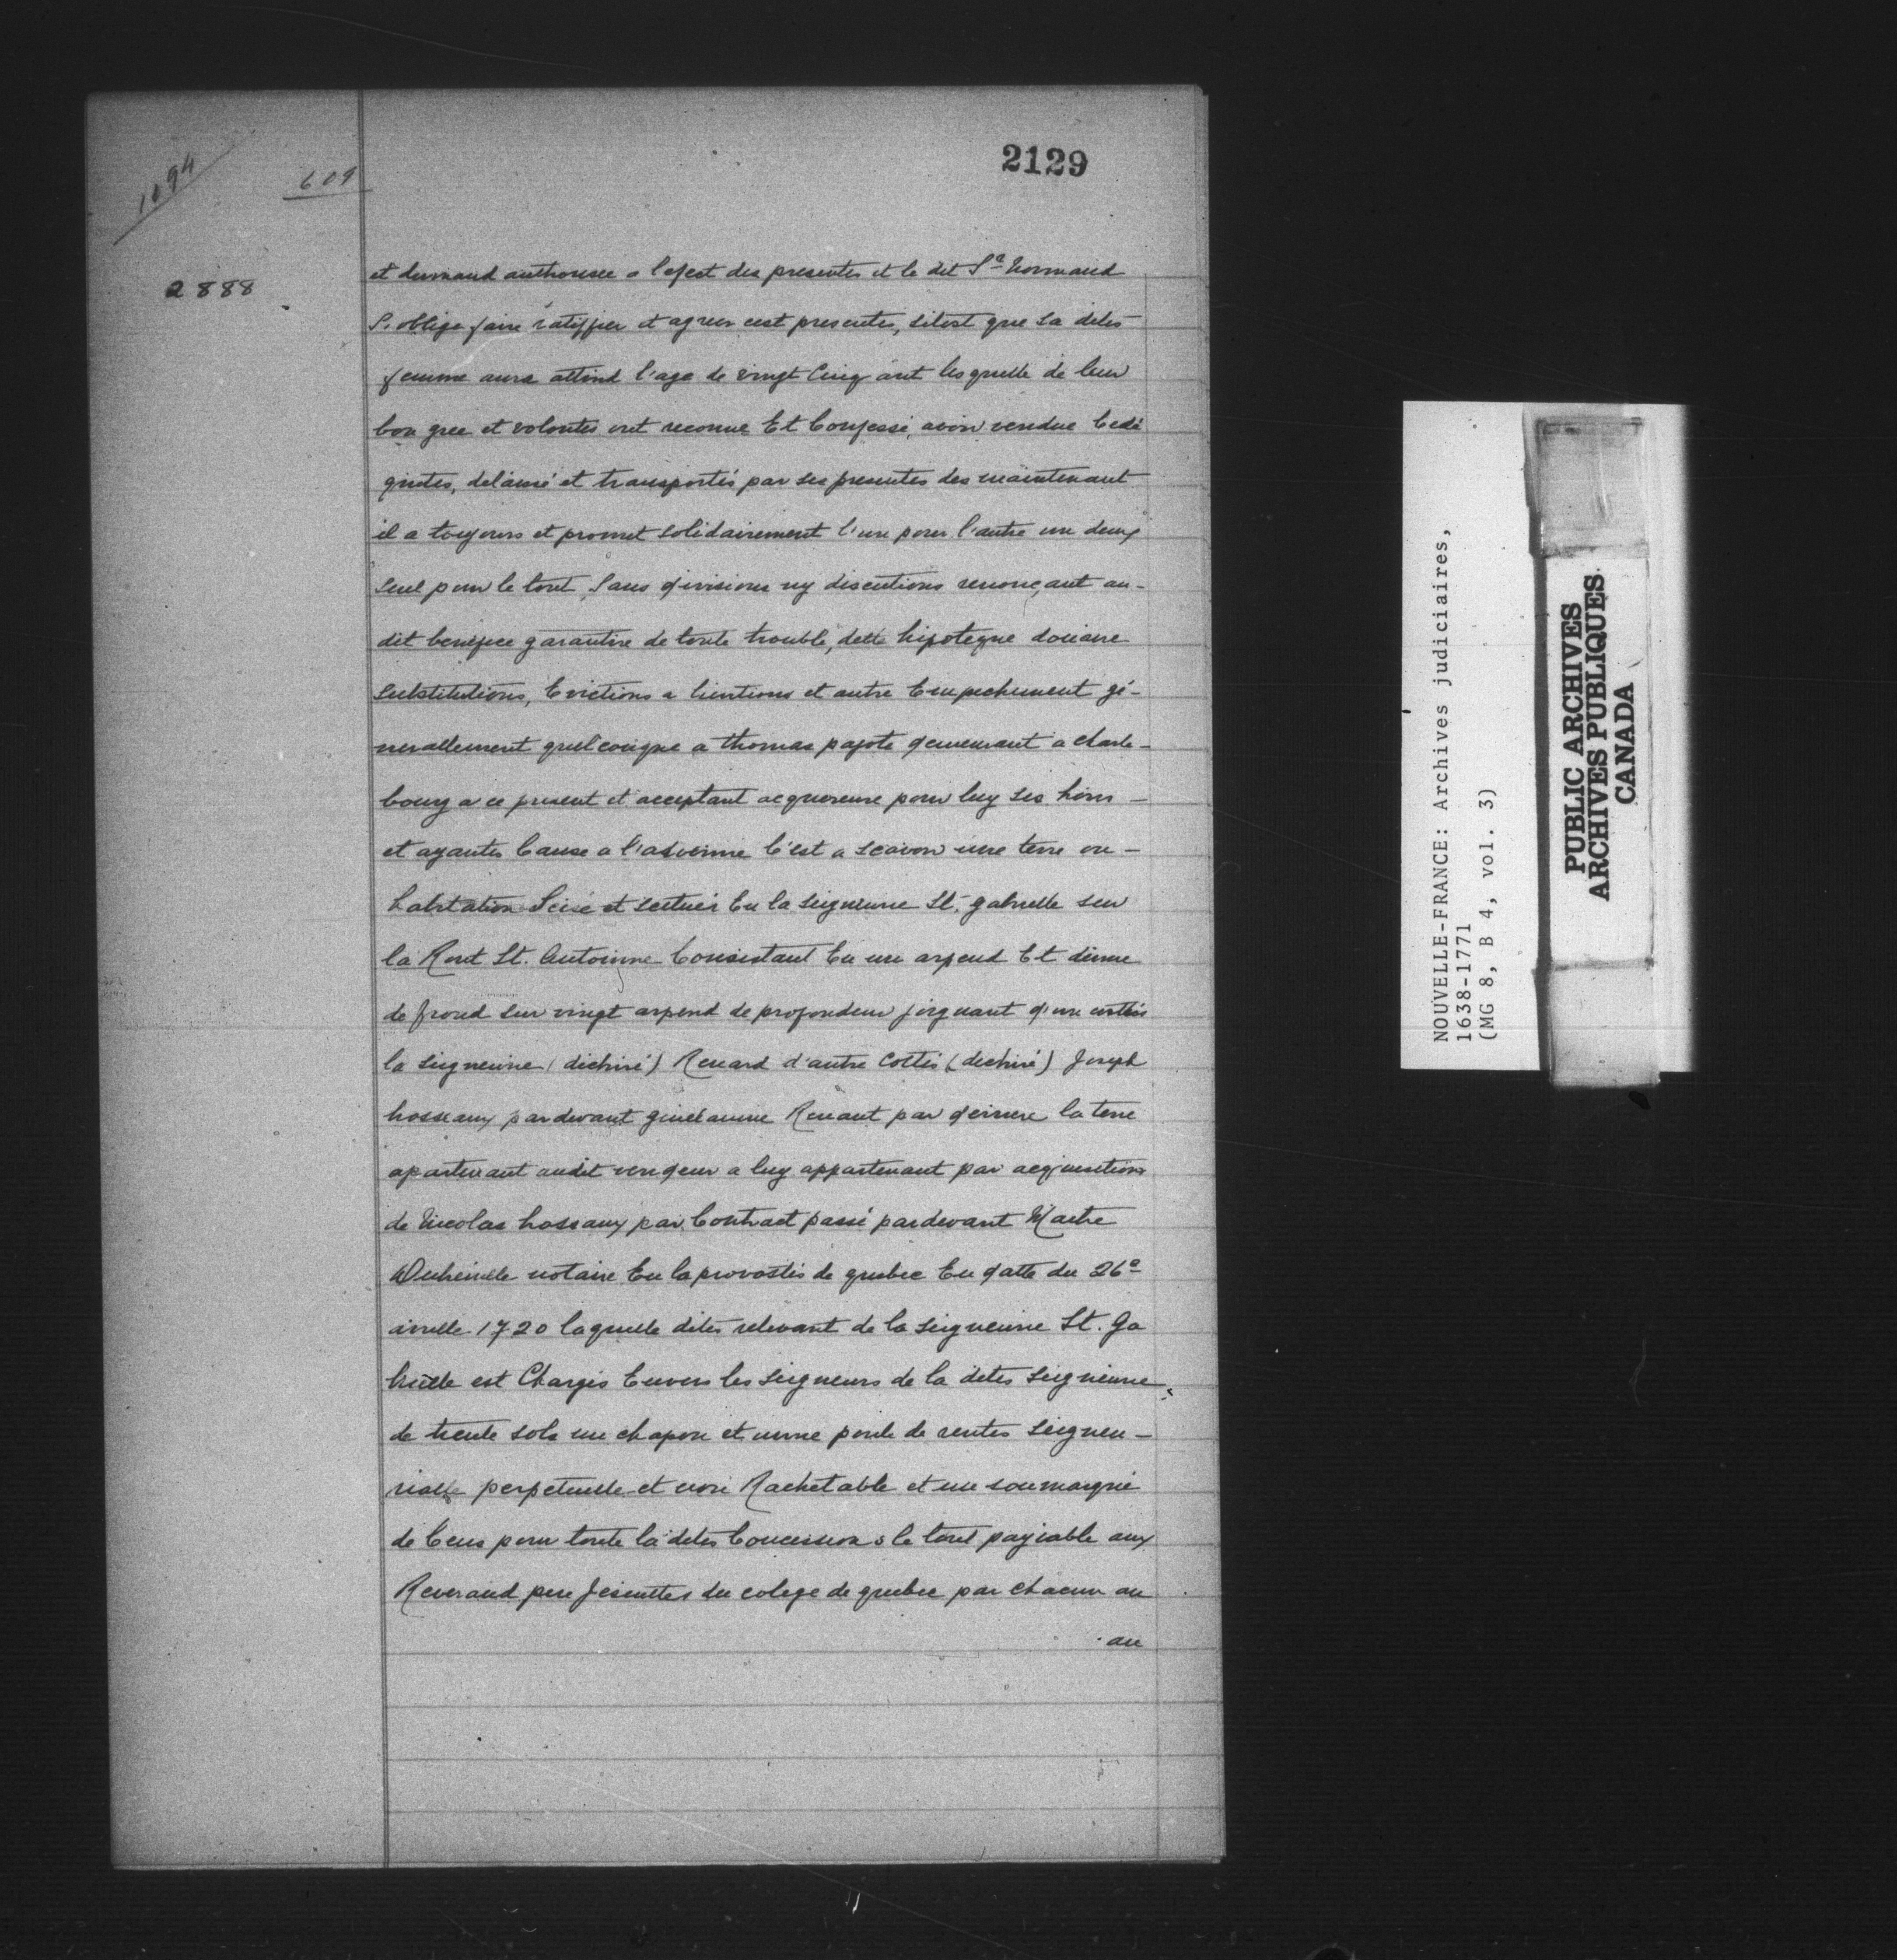 2129
1094
609
2888
et dumand authorisee a l'efect des presentes et le dit Sr. Normand
S'oblige faire ratiffier et agreer cest presentes, sitost que sa dites
femme aura attind l'age de vingt Cinq ant lesquelle de leur
bon gree et volontes ont reconnu Et Confessé, avoir vendue Cedé
quites, delaissé et transportés par ses presentes des maintenant
il a toujours et promet solidairement l'un pour l'autre un deux
seul pour le tout, sans divisions ny discutions renonçant au-
dit benefice garantire de toute trouble, dette hipoteque douaire
substitutions, Evictions a lientions et autre Empechement gé-
nerallement quelconque a thomas pajote demeurant a charle-
bourg a ce present et acceptant acquereure pour luy ses hoirs -
et ayantes Cause a l'advenire C'est a scavoir une terre ou -
habitation Seise et sertuér En la seigneurie St. gabrielle sur
la Rout St. Antoinne Consistant En un arpend Et dime
de frond sur vingt arpend de profondeur joignant d'un costés
la seigneurie (dechiré) Renard d'autre Costés (dechiré) Joseph
hosseaux pardevant guillaume Renaut par deriere la terre
apartenant audit vendeur a luy appartenant par acquisitions
de Nicolas hossaux par Contract passé pardevant Maitre
Dubreuille notaire En la provostés de quebec En datte du 26e
avrille 1720 laquelle dites relevant de la seigneurie St. Ga
brielle est Chargés Envers les seigneurs de la dites seigneurie
de trente sols un chapon et unne poule de rentes seigneu-
rialle perpetuelle et non Rachetable et un sou marqué
de Cens pour toute la dites Concession le tout payiable aux
Reverand pere Jesuittes du colege de quebec par chacun an
au
NOUVELLE-FRANCE: Archives judiciaires,
1638-1771
(MG 8, B 4, vol. 3)
PUBLIC ARCHIVES
ARCHIVES PUBLIQUES
CANADA